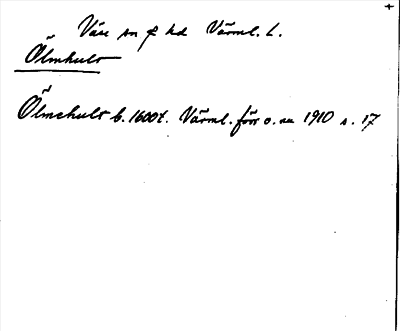 Väse sn f hd Värml. l.
Ölmhult
Ölmehult b. 1600t. Värml. förr o. nu 1910 s. 17